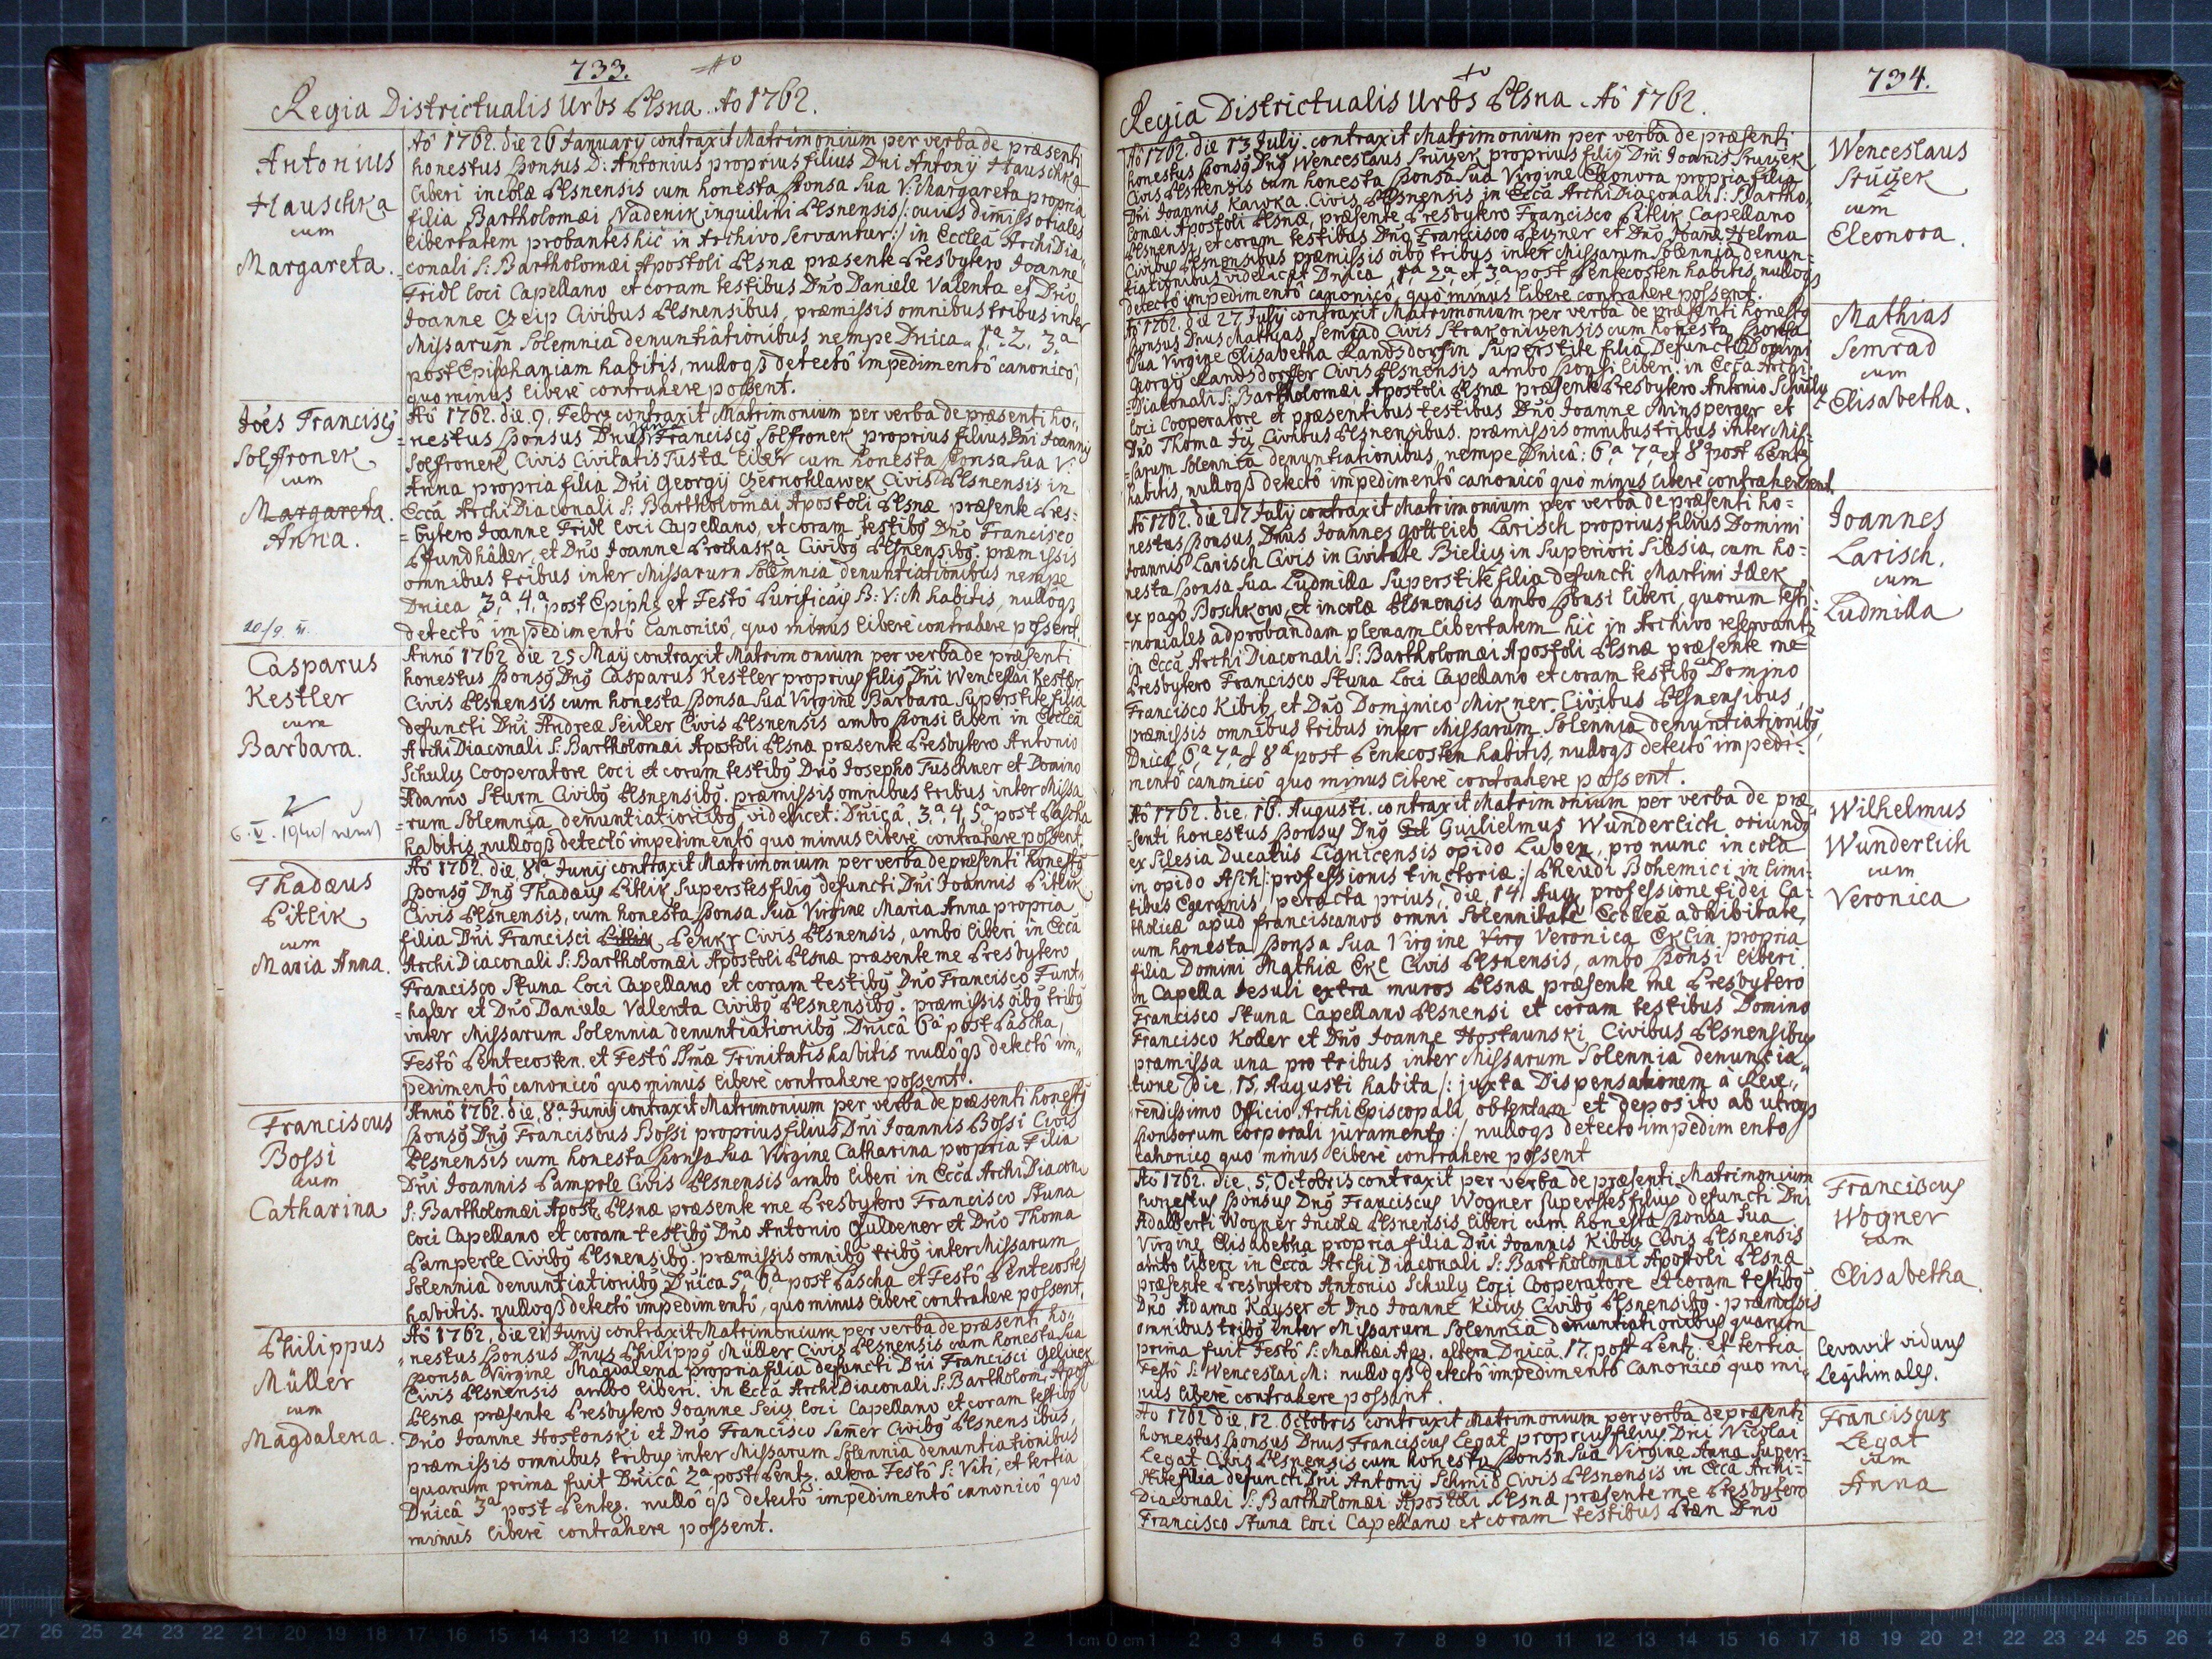 733.
Regia Districtualis Urbs Plsna. Aô 1762.
Antonius
Hauschka
cum
Margareta.
Aô 1762. die 26 January contraxit Matrimonium per verba de præsenti
honestus Sponsus D: Antonius proprius filius Dni Antonij Hauschka
liberi incolæ Plsnensis cum honesta Sponsa sua V: Margareta propria
filia Bartholomæi Nadenik inquilini Plsnensis /: cuius dimissoriales
libertatem probantes hic in Archivo servantur :/ in Eccleâ ArchiDia-
conali S: Bartholomæi Apostoli Plsnæ præsente Presbytero Joanne
Fridl loci Capellano et coram testibus Dno Daniele Valenta et Dno
Joanne Czeip Civibus Plsnensibus, præmissis omnibus tribus inter
Missarum Solemnia denuntiationibus nempe Dnica 1.ª 2. 3.ª
post Epiphaniam habitis, nulloqȝ detectô impedimentô canonicô,
quo minus liberè contrahere possent.
Joês Franciscȝ
Solffronek
cum
Margareta.
Anna.
20/9. II.
Aô 1762. die 9. Febrȝ contraxit Matrimonium per verba de præsenti ho-
nestus Sponsus Dnus Franciscȝ Solffronek proprius filius Dni Joannis
Solffronek Civis Civitatis Tustæ liber cum honesta Sponsa sua V:
Anna propria filia Dni Georgij Czernohlawek Civis Plsnensis in
Eccâ ArchiDiaconali S: Bartholomæi Apostoli Plsnæ præsente Pres-
bytero Joanne Fridl loci Capellano, et coram testibȝ Dno Francisco
Pfundhâller, et Dno Joanne Prochaska Civibȝ Plsnensibȝ. præmissis
omnibus tribus inter Missarum Solemnia denuntiationibus nempe
Dnica 3.ª 4.ª post Epiph: et Festô Purificãis B: V: M habitis, nullôqȝ
detectô impedimentô canonicô, quo minus liberè contrahere possent.
Casparus
Kestler
cum
Barbara.
6. V. 1940
Annô 1762 die 25 Maij contraxit Matrimonium per verba de præsenti
honestus Sponsȝ Dnȝ Casparus Kestler proprius filiȝ Dni Wenceslai Kestler
Civis Plsnensis cum honesta Sponsa sua Virgine Barbara Superstite filia
defuncti Dni Andreæ Seidler Civis Plsnensis ambo Sponsi liberi in Eccleâ
ArchiDiaconali S: Bartholomæi Apostoli Plsnæ præsente Presbytero Antonio
Schulz Cooperatore loci et coram testibȝ Dno Josepho Tuschner et Domino
Adamo Sturm Civibȝ Plsnensibȝ. præmissis omnibus tribus inter Missa-
rum Solemnia denuntiationibȝ, videlicet: Dnicâ, 3.ª, 4, 5.ª, post Pascha
habitis, nullôqȝ detectô impedimentô quo minus liberè contrahere possent.
Thadæus
Pitlik
cum
Maria Anna.
Aô 1762. die 8ª Junij contraxit Matrimonium per verba de præsenti honestȝ
Sponsȝ Dnȝ Thadæȝ Pitlik Superstes filiȝ defuncti Dni Joannis Pitlik
Civis Plsnensis, cum honesta Sponsa sua Virgine Maria Anna propria
filia Dni Francisci Pitlik Penkr Civis Plsnensis, ambo liberi in Eccâ
ArchiDiaconali S: Bartholomæi Apostoli Plsnæ præsente me Presbytero
Francisco Stuna Loci Capellano et coram testibȝ Dno Francisco Funt-
haler et Dno Daniele Valenta Civibȝ Plsnensibȝ. præmissis oibȝ tribȝ
inter Missarum Solennia denuntiationibȝ, Dnicâ 6ª post Pascha,
Festô Pentecosten. et Festô Ssmæ Trinitatis habitis nullôqȝ detectô im-
pedimentô canonicô quo minus liberè contrahere possent.
Franciscus
Bossi
cum
Catharina
Annô 1762. die, 8ª Junij contraxit Matrimonium per verba de præsenti honestȝ
Sponsȝ Dnȝ Franciscus Bossi proprius filius Dni Joannis Bossi Civis
Plsnensis cum honesta Sponsa sua Virgine Catharina propria Filia
Dni Joannis Pamperle Civis Plsnensis ambo liberi in Eccâ ArchiDiacon:
S: Bartholomæi Apost: Plsnæ præsente me Presbytero Francisco Stuna
loci Capellano et coram testibȝ Dno Antonio Guldener et Dno Thoma
Pamperle Civibȝ Plsnensibȝ. præmissis omnibȝ tribȝ inter Missarum
Solennia denuntiationibȝ Dnica 5.ª 6.ª post Pascha et Festô Pentecostes
habitis. nulloqȝ detectô impedimentô, quo minus liberè contrahere possent.
Philippus
Müller
cum
Magdalena.
Aô 1762, die 21 Junij contraxit Matrimonium per verba de præsenti ho-
nestus Sponsus Dnus Philippȝ Müller Civis Plsnensis cum honesta sua
Sponsa Virgine Magdalena propria filia defuncti Dni Francisci Gelinek
Civis Plsnensis ambo liberi. in Eccâ ArchiDiaconali S: Bartholom: Apos
Plsnæ præsente Presbytero Joanne Seiz loci Capellano et coram testibȝ
Dno Joanne Hostonski et Dno Francisco Samer Civibȝ Plsnensibus,
præmissis omnibus tribus inter Missarum Solennia denuntiationibus
quarum prima fuit Dnicâ 2ª, post Pentȝ. altera Festô S: Viti, et tertia
Dnicâ 3ª post Penteȝ. nullô qȝ detectô impedimentô canonicô quo
minus liberè contrahere possent.
734.
Regia Districtualis Urbs Plsna. Aô 1762.
Aô 1762. die 13 Julij. contraxit Matrimonium per verba de præsenti
honestus Sponsȝ Dnȝ Wenceslaus Sruzek proprius filiȝ Dni Joanis Sruzek
Civis Plsnensis cum honesta Sponsa sua Virgine Eleonora propria filia
Dni Joannis Kawka. Civis Plsnensis in Eccâ ArchiDiaconali S: Bartho-
lomæi Apostoli Plsnæ, præsente Presbytero Francisco Pitlik Capellano
Plsnensi, et coram testibus Dno Francisco Peizner et Dno Joane Helma
Civibȝ Plsnensibus præmissis oibȝ tribus inter Missarum Solennia denun-
tiationibus videlicet Dnica 1ª, 2ª, et 3ª post Pentecosten habitis, nulloqȝ
detectô impedimentô canonicô, quô minus liberè contrahere possent.
Wenceslaus
Sruzek
cum
Eleonora.
Aô 1762. die 27 Julij contraxit Matrimonium per verba de præsenti honestȝ
Sponsus Dnus Mathias Semrad Civis Strakonicensis cum honesta Sponsa
sua Virgine Elisabetha Randsdorfin Superstite filia Defuncti Domini
Georgij Randsdorffer Civis Plsnensis ambo Sponsi liberi. in Eccâ Archi-
Diaconali S: Bartholomæi Apostoli Plsnæ præsente Presbytero Antonio Schulz
loci Cooperatore et præsentibus testibus Dno Joanne Minsperger et
Dno Thoma Civibus Plsnensibus. præmissis omnibus tribus inter Mis-
sarum Solennia denuntiationibus, nempe Dnicâ: 6.ª 7.ª et 8ª post Pentȝ
habitis, nulloqȝ detectô impedimentô canonicô quo minus liberè contrahere possent.
Mathias
Semrad
cum
Elisabetha.
Aô 1762. die 27 Julij contraxit Matrimonium per verba de præsenti ho-
nestus Sponsus, Dnus Joannes Gottlieb Larisch proprius filius Domini
Joannis Larisch Civis in Civitate Bieliz in Superiori Silesia, cum ho-
nesta Sponsa sua Ludmilla Superstite filia defuncti Martini
ex pago Boschkow, et incolæ Plsnensis ambo Sponsi liberi, quorum testi-
moniales ad probandam plenam libertatem hic in Archivo reservantȝ
in Eccâ ArchiDiaconali S: Bartholomæi Apostoli Plsnæ præsente me
Presbytero Francisco Stuna Loci Capellano et coram testibȝ Domino
Francisco Kibitz, et Dno Dominico Mikner. Civibus Plsnensibus,
præmissis omnibus tribus inter Missarum Solennia denuntiationibȝ,
Dnicâ, 6ª 7ª et 8ª post Pentecosten habitis, nulloqȝ detectô impedi-
mentô canonicô quo minus liberè contrahere possent.
Joannes
Larisch.
cum
Ludmilla
Aô 1762. die, 16. Augusti. contraxit Matrimonium per verba de præ-
senti honestus Sponsus Dnȝ Guilielmus Wunderlich oriundȝ
ex Silesia Ducatus Lignicensis opido Luben, pro nunc incola
in opido Asch /: professionis tinctoriæ :/ Pheudi Bohemici in limi-
tibus Egeranis, peracta prius, die, 14 Aug. professione fidei Ca-
tholicæ apud franciscanos omni Solennitate Eccleâ adhibitate,
cum honesta Sponsa sua Virgine Virg Veronica Eklin propria
filia Domini Mathiæ Ekl Civis Plsnensis, ambo Sponsi liberi
in Capella Jesuli extra muros Plsnæ præsente me Presbytero
Francisco Stuna Capellano Plsnensi et coram testibus Domino
Francisco Koller et Dno Joanne Hostaunski, Civibus Plsnensibus
præmissa una pro tribus inter Missarum Solennia denuntia-
tione die, 15, Augusti habita /: juxta Dispensationem â Reve-
rendissimo Officio ArchiEpiscopali obtentam et deposito ab utroqȝ
Sponsorum corporali juramento :/ nulloqȝ detecto impedimento
canonico quo minus liberè contrahere possent
Wilhelmus
Wunderlich
cum
Veronica
Aô 1762. die, 5, Octobris contraxit per verba de præsenti Matrimonium
honestus Sponsus Dnȝ Franciscus Wogner superstes filius defuncti Dni
Adalberti Wogner Incolæ Plsnensis liberi cum honesta Sponsa sua
Virgine Elisabetha propria filia Dni Joannis Kibiz Civis Plsnensis
ambo liberi in Eccâ ArchiDiaconali S: Bartholomæi Apostoli Plsnæ
præsente Presbytero Antonio Schulz loci Cooperatore et coram testibȝ
Dno Adamo Kayser et Dno Joanne Kibiz Civibȝ Plsnensibȝ. præmissis
omnibus tribȝ inter Missarum Solennia denuntiationibus quarum
prima fuit Festô S: Mathæi Ap. altera Dnica. 17 post Pent: et tertia
Festô S: Wenceslai M: nulloqȝ detectô impedimentô canonicô quo mi-
nus liberè contrahere possent.
Franciscus
Wogner
cum
Elisabetha
levavit viduus
Legitimales.
Aô 1762 die, 12. Octobris contraxit Matrimonium per verba de præsenti
honestus Sponsus Dnus Franciscus Legat proprius filius Dni Nicolai
Legat Civis Plsnensis cum honesta Sponsa sua Virgine Anna super-
stite filia defuncti Dni Antonij Schmid Civis Plsnensis in Eccâ Archi-
Diaconali S: Bartholomæi Apostoli Plsnæ præsente me Presbytero
Francisco Stuna loci Capellano et coram testibus Dno
Franciscus
Legat
cum
Anna